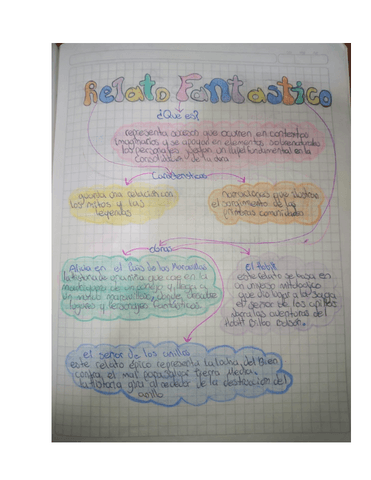 Relato Fantastico
¿Que es?
representa sucesos que ocurren en contextos
imaginarios y se apoyan en elementos sobrenaturales
los personajes juegan un papel fundamental en la
de la obra
Caracteristicas
guarda una relacion con
los mitos y las
leyendas
narraciones que
el surgimiento de las
primeras comunidades
obras
Alicia en el Pais de las Maravillas
la historia de una niña que cae en la
madriguera de un conejo y llega a
un mundo maravilloso, donde
lugares y personajes fantasticos.
El hobbit
este relato se basa en
un universo mitologico
que dio lugar a la saga
el señor de los anillos
narra las aventuras del
hobbit Bilbo Bolson.
El señor de los anillos
este relato épico representa la lucha del Bien
contra el mal para salvar tierra Media.
la historia gira alrededor de la destruccion del
anillo